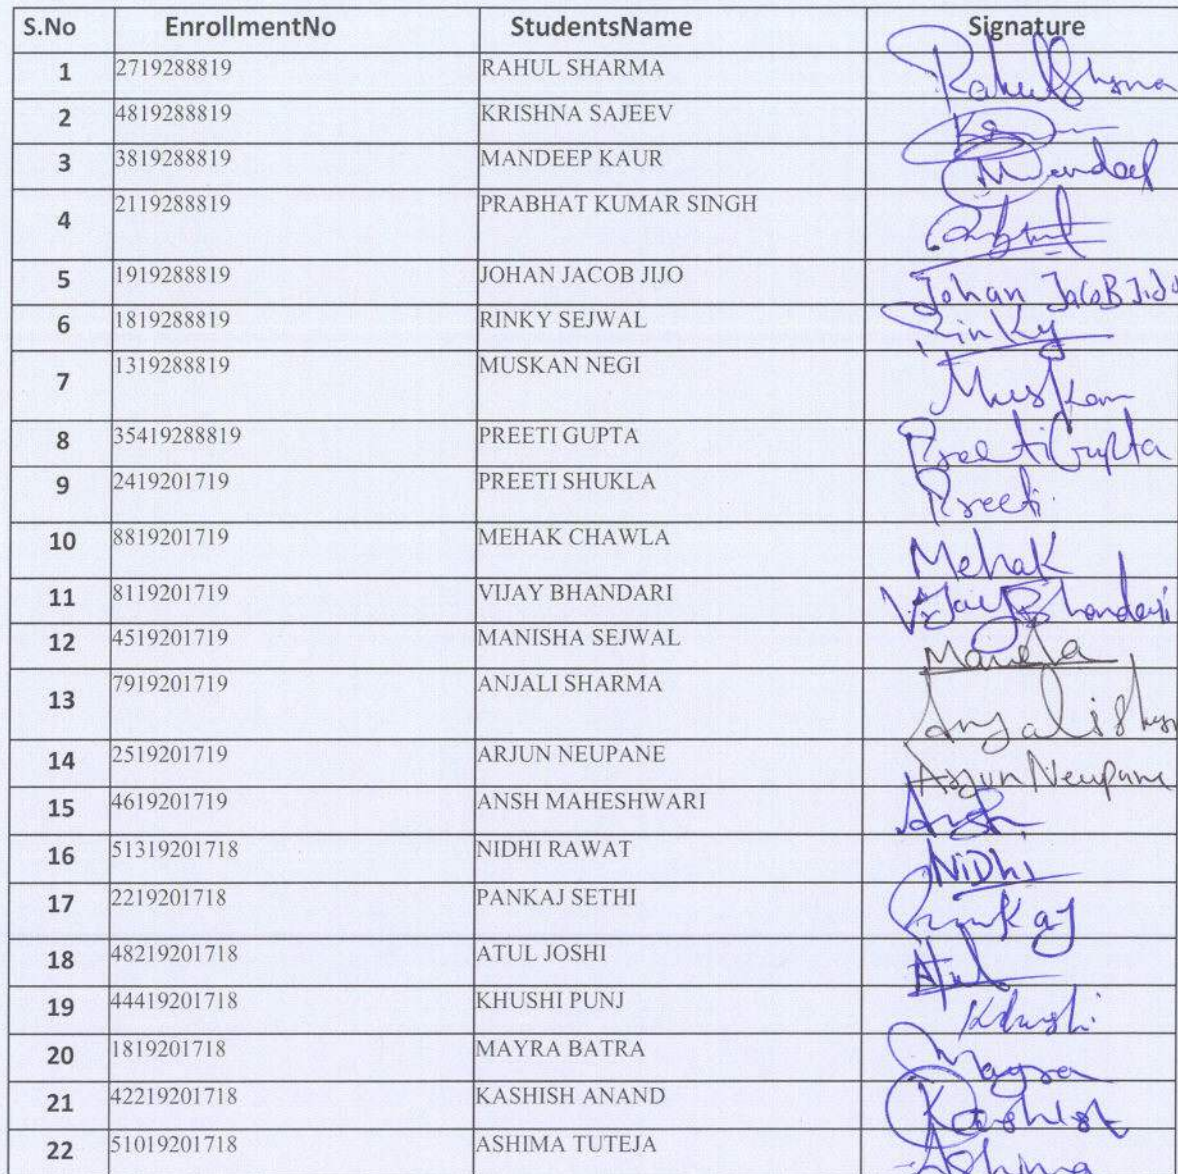 S.No EnrollmentNo StudentsName Signature
1 2719288819 RAHUL SHARMA Rahul Shrma
2 4819288819 KRISHNA SAJEEV
3 3819288819 MANDEEP KAUR Mandeep
4 2119288819 PRABHAT KUMAR SINGH
5 1919288819 JOHAN JACOB JIJO Johan JacoB JiJo
6 1819288819 RINKY SEJWAL Rinky
7 1319288819 MUSKAN NEGI Muskan
8 35419288819 PREETI GUPTA Preeti Gupta
9 2419201719 PREETI SHUKLA Preeti
10 8819201719 MEHAK CHAWLA Mehak
11 8119201719 VIJAY BHANDARI Vijay Bhandari
12 4519201719 MANISHA SEJWAL
13 7919201719 ANJALI SHARMA Anjali
14 2519201719 ARJUN NEUPANE Arjun Neupane
15 4619201719 ANSH MAHESHWARI Ansh
16 51319201718 NIDHI RAWAT NiDhi
17 2219201718 PANKAJ SETHI Pankaj
18 48219201718 ATUL JOSHI Atul
19 44419201718 KHUSHI PUNJ Khushi
20 1819201718 MAYRA BATRA Mayra
21 42219201718 KASHISH ANAND Kashish
22 51019201718 ASHIMA TUTEJA Ashima